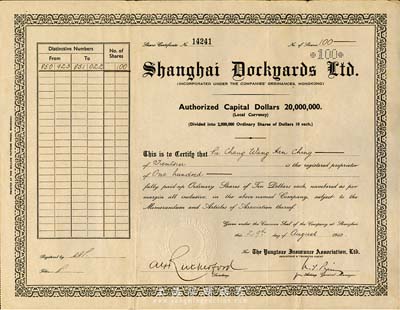 Share Certificate No. 14241
No. of Shares 100
100
Shanghai Dockyards Ltd.
(INCORPORATED UNDER THE COMPANIES' ORDINANCES, HONGKONG)
Authorized Capital Dollars 20,000,000.
(Local Currency)
(Divided into 2,000,000 Ordinary Shares of Dollars 10 each.)
Distinctive Numbers
No. of Shares
From
To
850 923
851 022
100
This is to Certify that
Chang Wang
Ching
of Tientsin is the registered proprietor
of One hundred
fully paid-up Ordinary Shares of Ten Dollars each, numbered as per
margin all inclusive in the above-named Company, subject to the
Memorandum and Articles of Association thereof.
Given under the Common Seal of the Company at Shanghai
this day of August
For The Yangtsze Insurance Association, Ltd.
Secretary.
General Manager.
Registered by
Folio